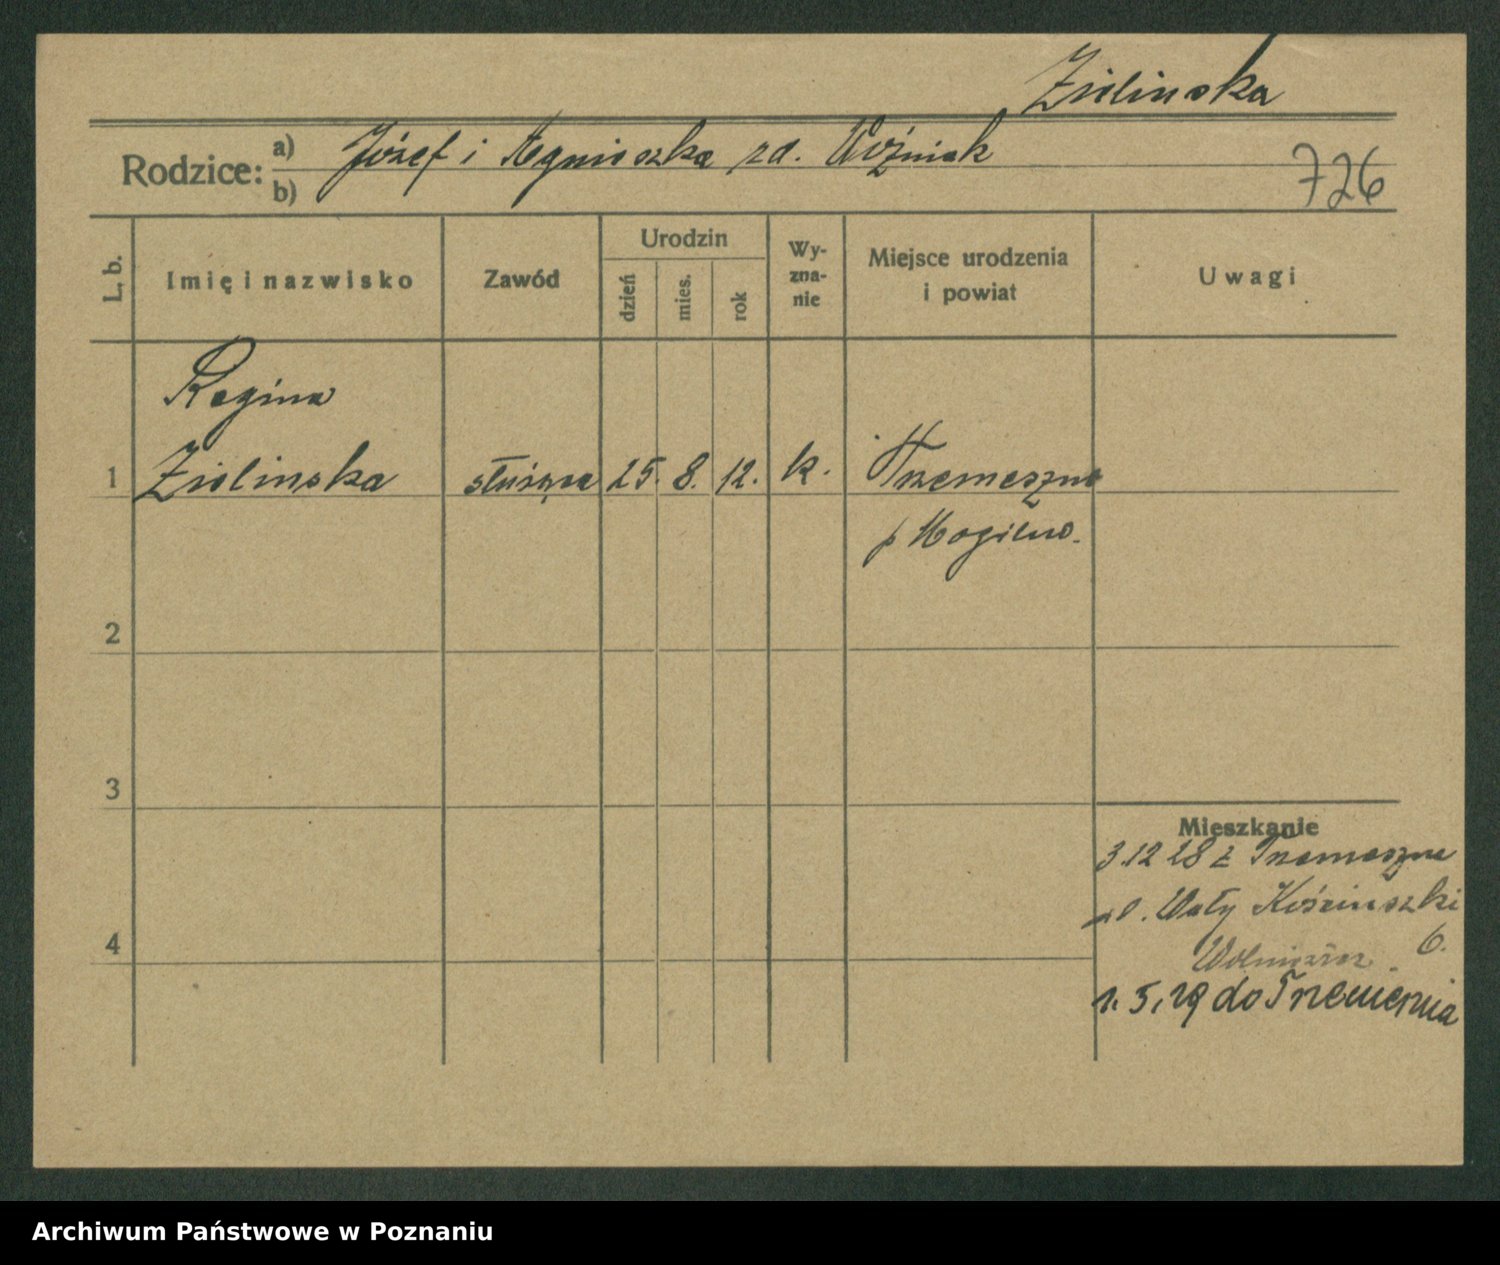 Zielinska
Rodzice: a) Józef i Agnieszka zd. Woźniak
b)
726
L. b.
Imię i nazwisko
Zawód
Urodzin
dzień
mies.
rok
Wy-
zna-
nie
Miejsce urodzenia
i powiat
Uwagi
Regina
1 Zielinska służąca 25. 8. 12. k. Trzemeszno
p Mogilno.
2
3
Mieszkanie
3.12 28 z Trzemeszna
ul. Wały Kościuszki
4
6.
1.5.29 do Trzemeszna
Archiwum Państwowe w Poznaniu